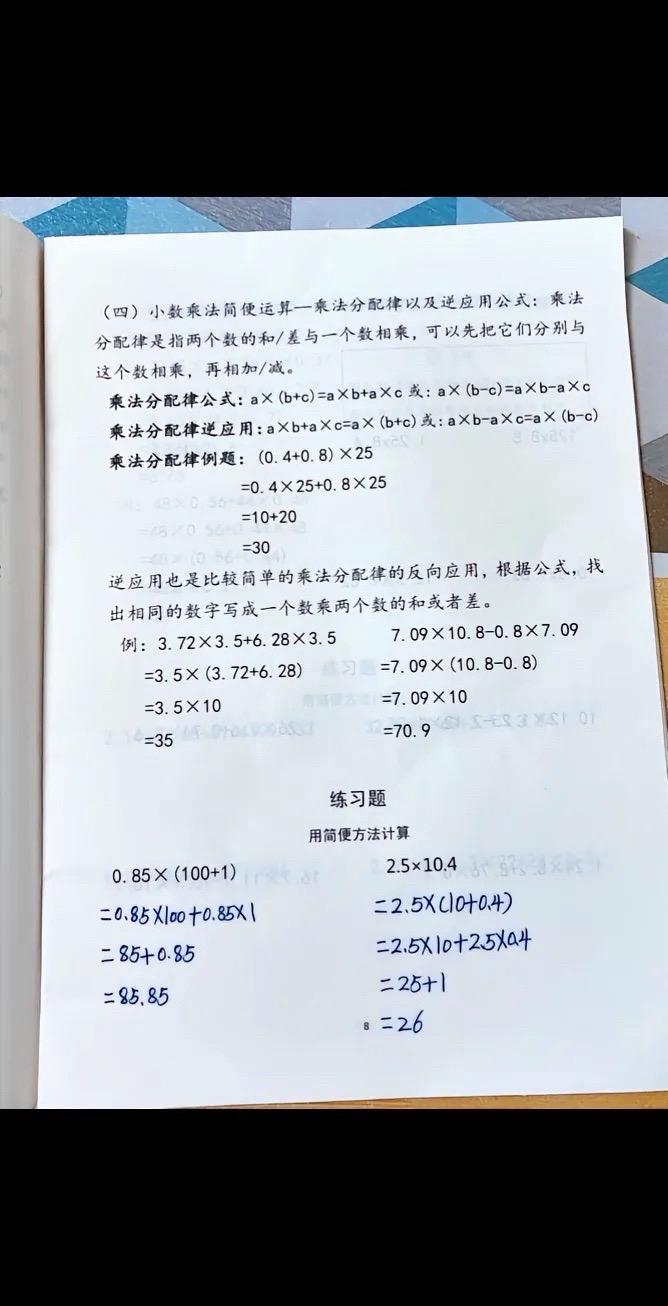 （四）小数乘法简便运算—乘法分配律以及逆应用公式：乘法
分配律是指两个数的和/差与一个数相乘，可以先把它们分别与
这个数相乘，再相加/减。
乘法分配律公式：a×(b+c)=a×b+a×c 或：a×(b-c)=a×b-a×c
乘法分配律逆应用：a×b+a×c=a×(b+c) 或：a×b-a×c=a×(b-c)
乘法分配律例题：(0.4+0.8)×25
=0.4×25+0.8×25
=10+20
=30
逆应用也是比较简单的乘法分配律的反向应用，根据公式，找
出相同的数字写成一个数乘两个数的和或者差。
例：3.72×3.5+6.28×3.5 7.09×10.8-0.8×7.09
=3.5×(3.72+6.28) =7.09×(10.8-0.8)
=3.5×10 =7.09×10
=35 =70.9
练习题
用简便方法计算
0.85×(100+1) 2.5×10.4
=0.85×100+0.85×1 =2.5×(10+0.4)
=85+0.85 =2.5×10+2.5×0.4
=85.85 =25+1
8 =26